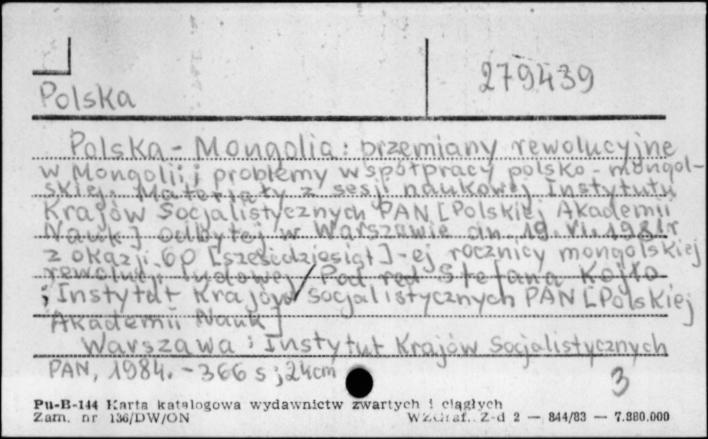 279439
Polska
Polska - Mongolia: przemiany rewolucyjne
w Mongolii i problemy współpracy polsko-mongol-
skiej. Materiały z sesji naukowej Instytutu
Krajów Socjalistycznych PAN [Polskiej Akademii
Nauk] odbytej w Warszawie dn. 19.VI.1981r
z okazji 60 [sześćdziesiąt]-ej rocznicy mongolskiej
rewolucji ludowej / Pod red Stefana
; Instytut Krajów Socjalistycznych PAN [Polskiej
Akademii Nauk]
Warszawa : Instytut Krajów Socjalistycznych
PAN, 1984. - 366 s ; 24cm
3
Pu-B-144 Karta katalogowa wydawnictw zwartych i ciągłych
Zam. nr 136/DW/ON WZGraf. Z-d 2 — 844/83 — 7.880.000